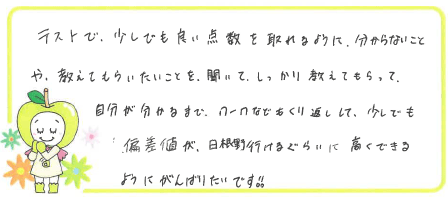 テストで、少しでも良い点数を取れるように、分からないこと
や、教えてもらいたいことを、聞いて、しっかり教えてもらって、
自分が分かるまで、ワークなどをくり返しして、少しでも
偏差値が、日根野行けるぐらいに高くできる
ようにがんばりたいです!!